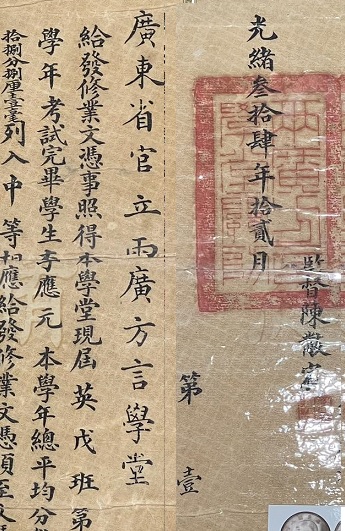 廣東省官立兩廣方言學堂
給發修業文憑事照得本學堂現屆英戊班第
學年考試完畢學生李應元本學年總平均分
拾捌分捌厘壹毫列入中等相應給發修業文憑須至
光緒叁拾肆年拾貳月
監督陳黻宸
第壹